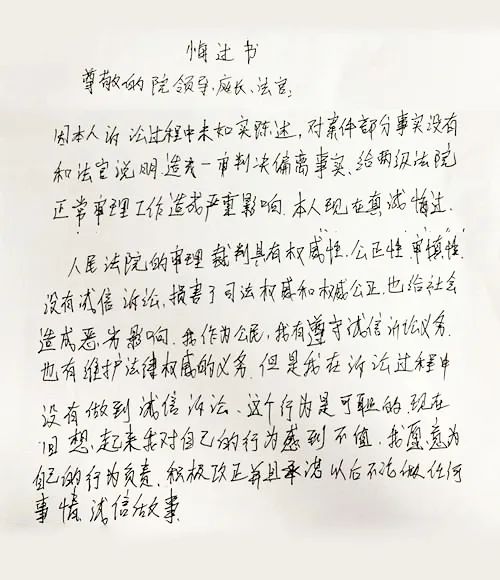 悔过书
尊敬的院领导、庭长、法官：
因本人诉讼过程中未如实陈述，对案件部分事实没有
和法官说明.造成一审判决偏离事实、给两级法院
正常审理工作造成严重影响.本人现在真诚悔过.
人民法院的审理裁判具有权威性.公正性.审慎性.
没有诚信诉讼，损害了司法权威和权威公正.也给社会
造成恶劣影响.我作为公民，我有遵守诚信诉讼义务.
也有维护法律权威的义务.但是我在诉讼过程中
没有做到诚信诉讼、这个行为是可耻的.现在
回想起来我对自己的行为感到不值.我愿意为
自己的行为负责.积极改正并且承诺以后不论做任何
事情.诚信做事.